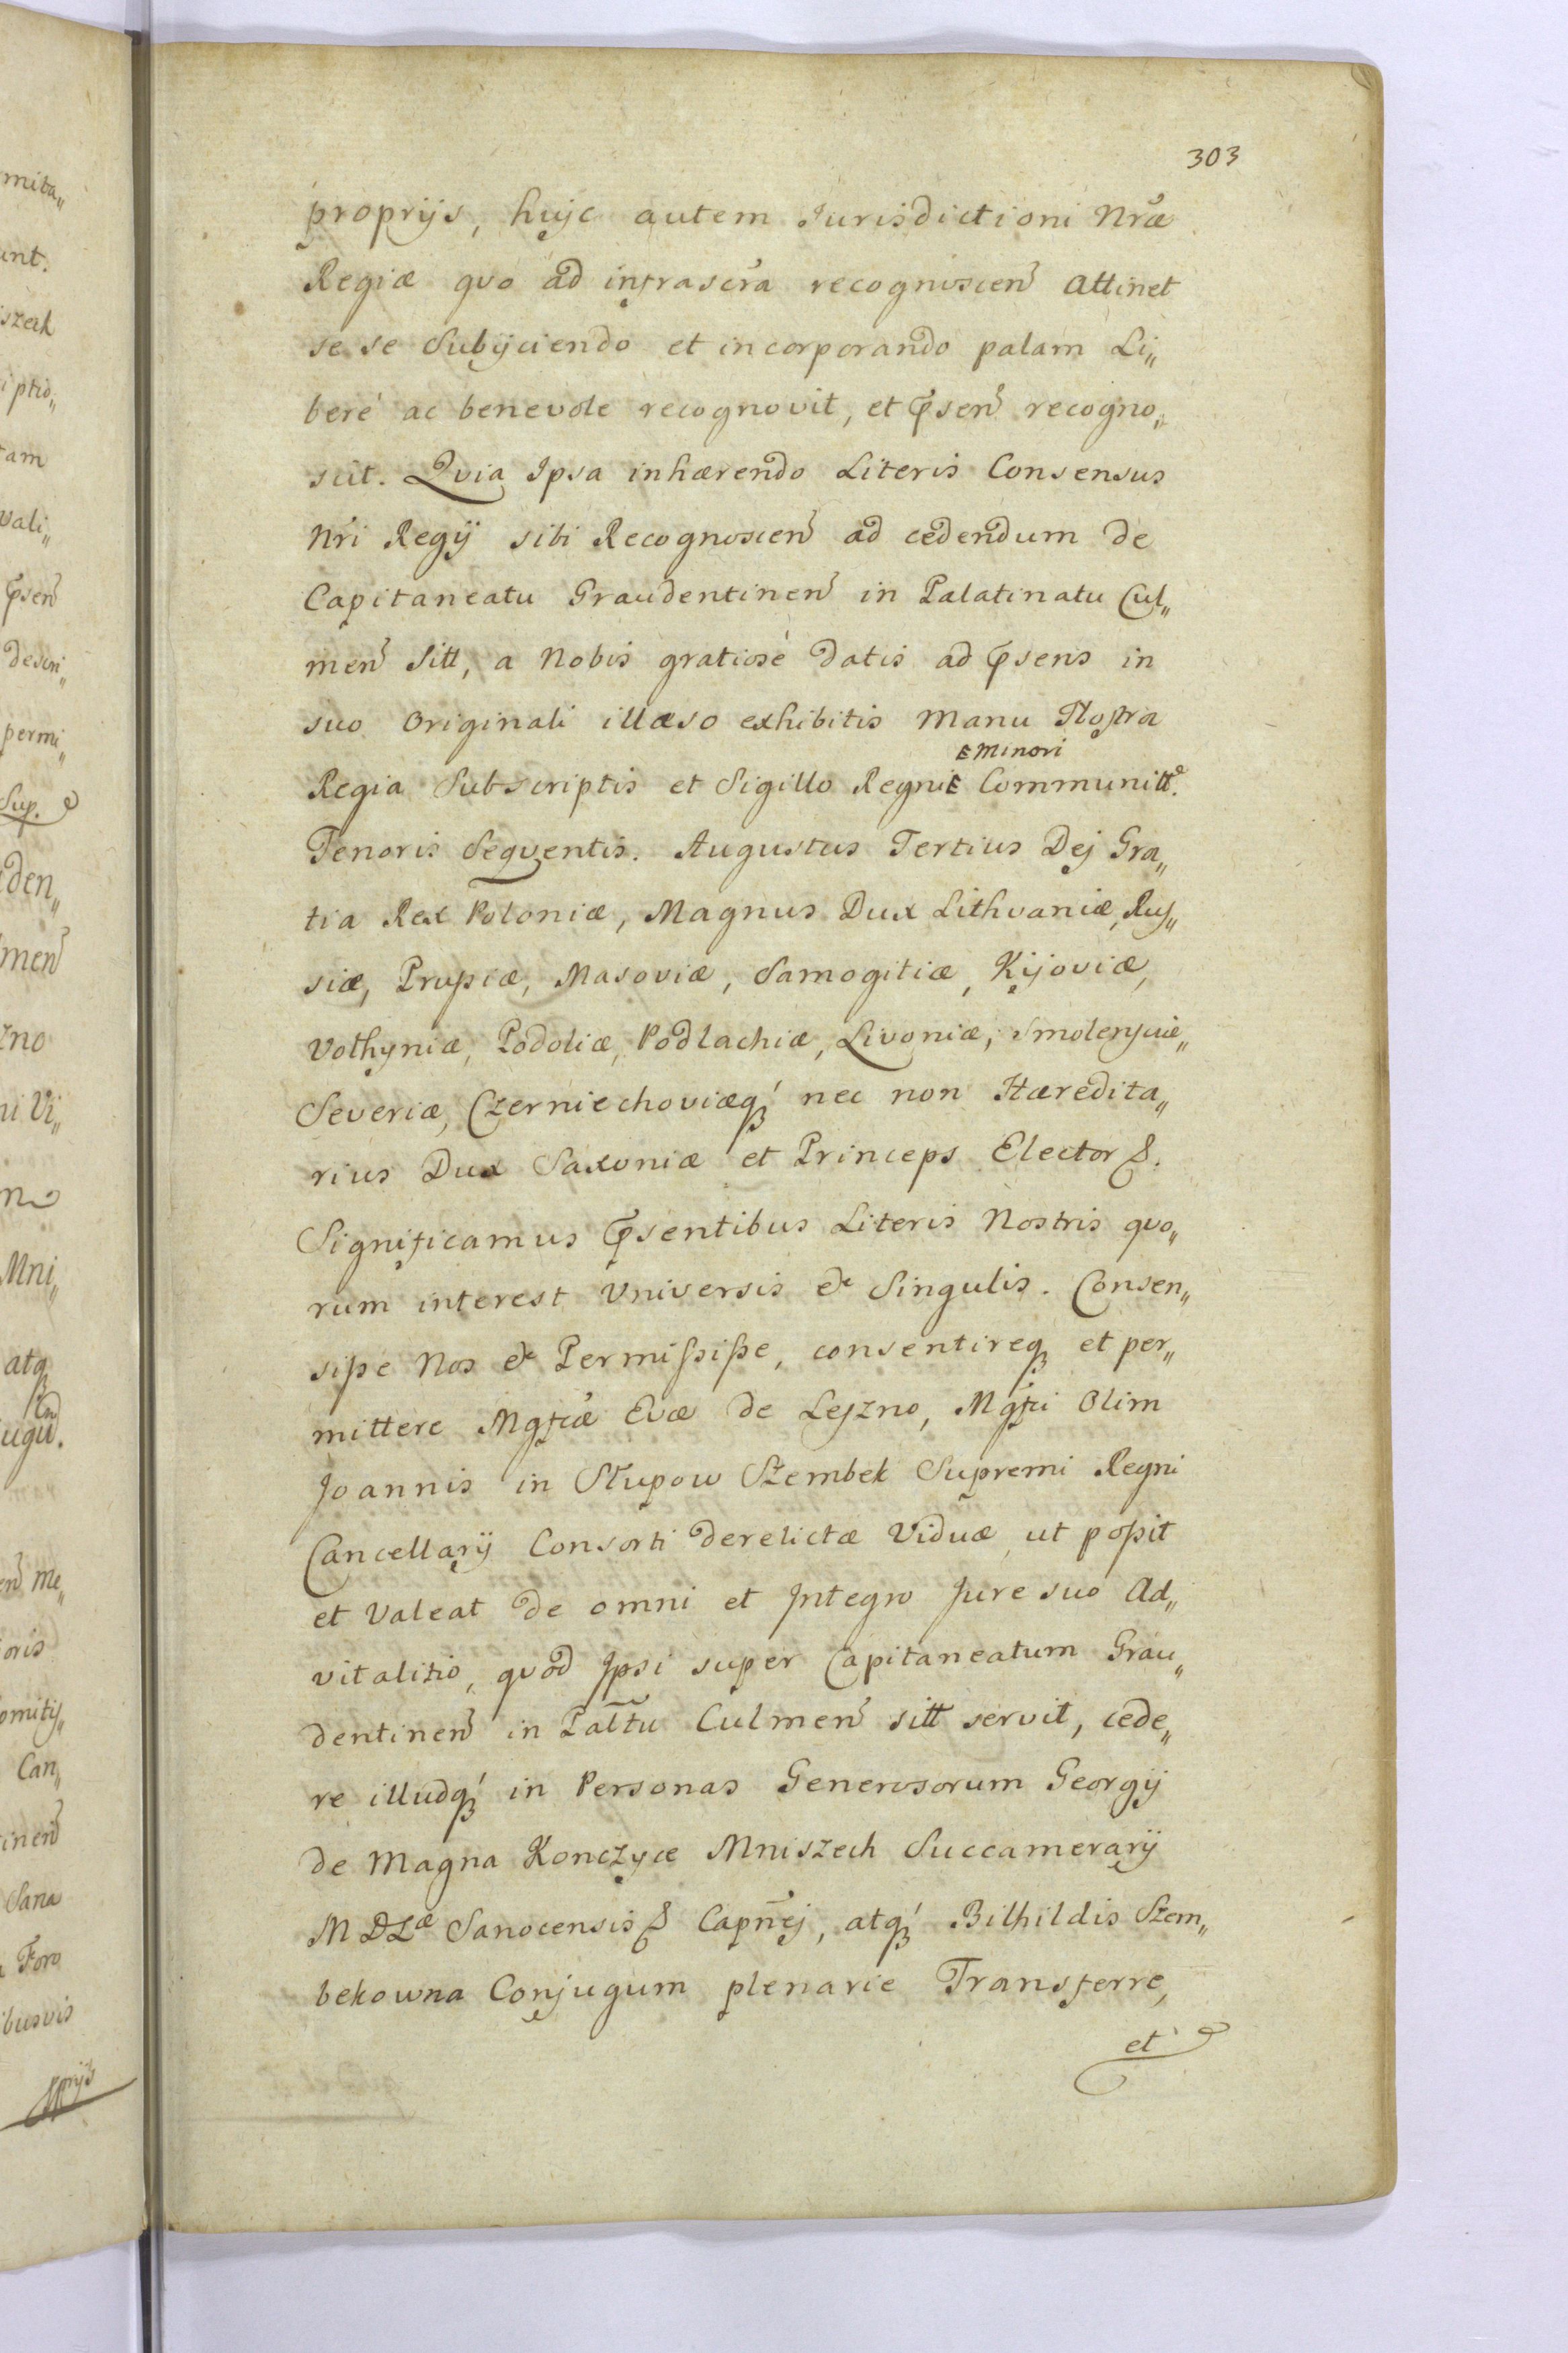 303
proprijs, hujc autem Jurisdictioni Nræ
Regiæ qvo ad infrascra recognoscen attinet
se se Subijciendo et incorporando palam Li„
beré ac benevole recognovit, et Psen recogno„
scit. Qvia Ipsa inhærendo Literis Consensus
Nri Regij sibi Recognoscen ad cedendum de
Capitaneatu Graudentinen in Palatinatu Cul„
men Sitt, a Nobis gratiosè datis ad Psens in
suo Originali illæso exhibitis Manu Nostra
E Minori
Regia Subscriptis et Sigillo Regni E Communitt.
Tenoris Seqventis. Augustus Tertius Dej Gra„
tia Rex Poloniæ, Magnus Dux Lithvaniæ, Rus„
siæ, Prussiæ, Masoviæ, Samogitiæ, Kijoviæ,
Volhyniæ, Podoliæ, Podlachiæ, Livoniæ, Smolensciæ„
Severiæ, Czerniechoviæq́ nec non Hæredita„
rius Dux Saxoniæ et Princeps Elector &.
Significamus Psentibus Literis Nostris qvo„
rum interest Vniversis & Singulis. Consen„
sisse Nos & Permisisse, consentireq et per„
mittere Mgfcæ Evæ de Leszno, Mgfci Olim
Joannis in Słupow Szembek Supremi Regni
Cancellarij Consorti derelictæ Viduæ, ut possit
et Valeat de omni et Integro Jure suo Ad„
vitalitio, qvod Ipsi super Capitaneatum Grau„
dentinen in Paltu Culmen sitt servit, cede„
re illudq́ in Personas Generosorum Georgij
de Magna Konczyce Mniszech Succamerarij
M D Læ Sanocensis & Capnej, atq́ Bilhildis Szem„
bekowna Conjugum plenarie Transferre,
et